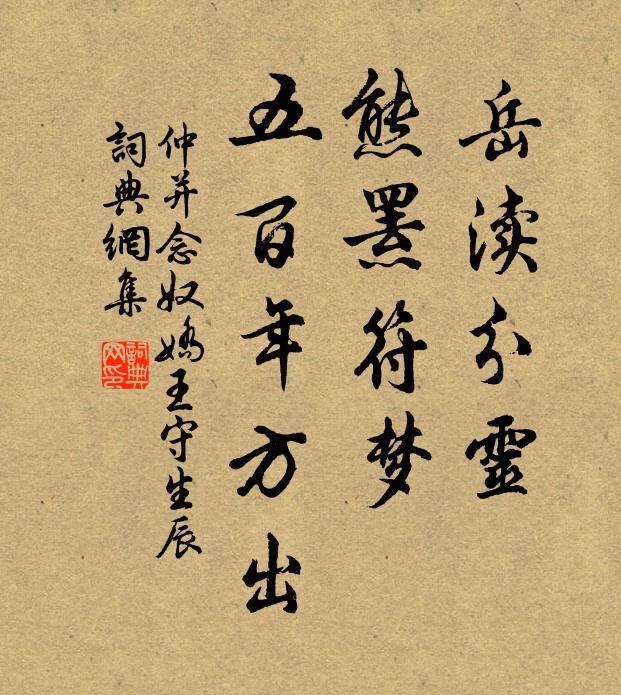 岳渎分靈
熊罴符梦
五百年方出
仲并念奴嬌王守生辰
詞典網集
詞典网印